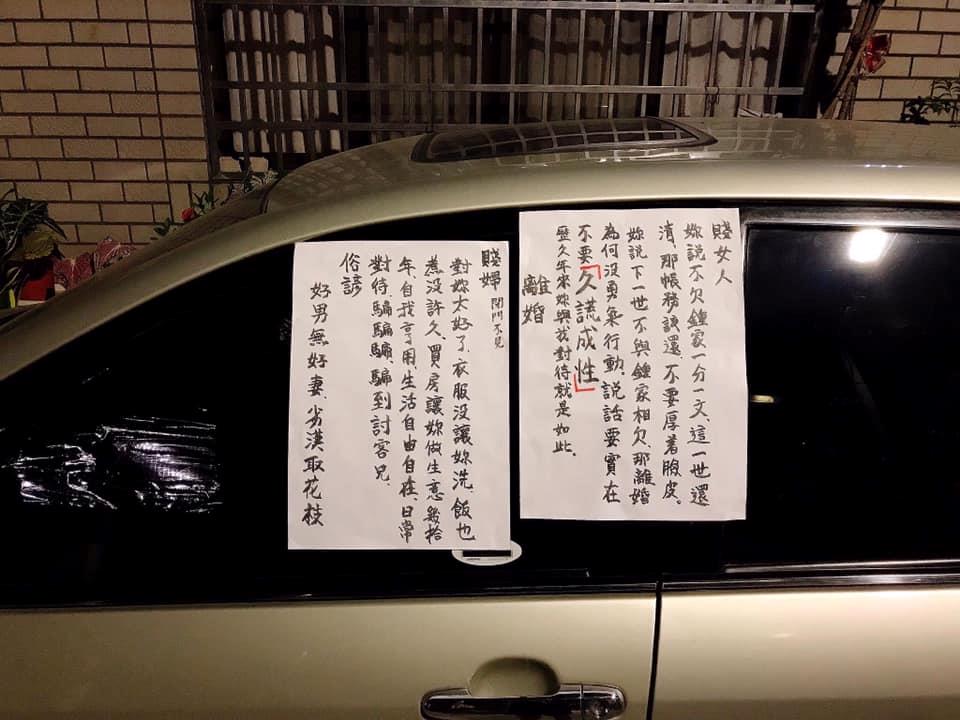 賤女人
妳說不欠鍾家一分一文、這一世還
清、那帳務該還、不要厚着臉皮。
妳說下一世不與鍾家相欠、那離婚
為何没勇氣行動、說話要實在
不要「久謊成性」
歷久年來妳與我對待就是如此.
離婚
賤婦 閉門不見
對妳太好了、衣服没讓妳洗、飯也
煮没許久、買房讓妳做生意幾拾
年、自我享用、生活自由自在、日常
對待騙騙騙、騙到討客兄、
俗諺
好男無好妻、劣漢取花枝